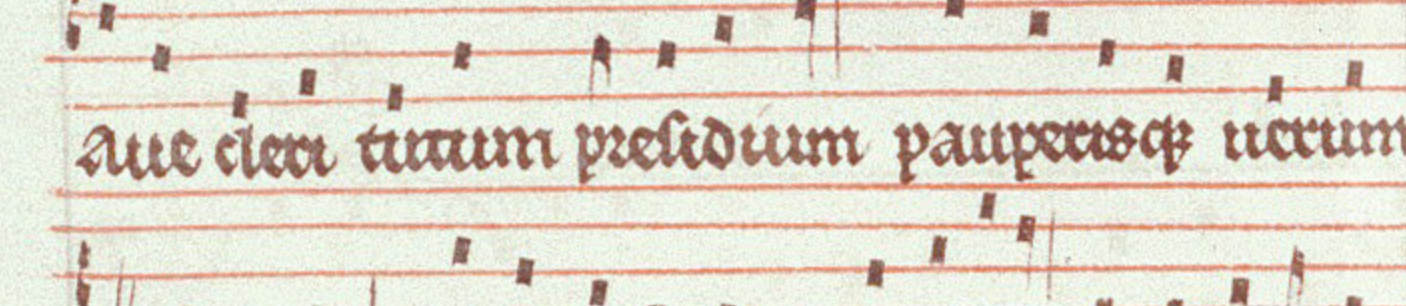 Aue cleri tutum presidium pauperisq; uerum